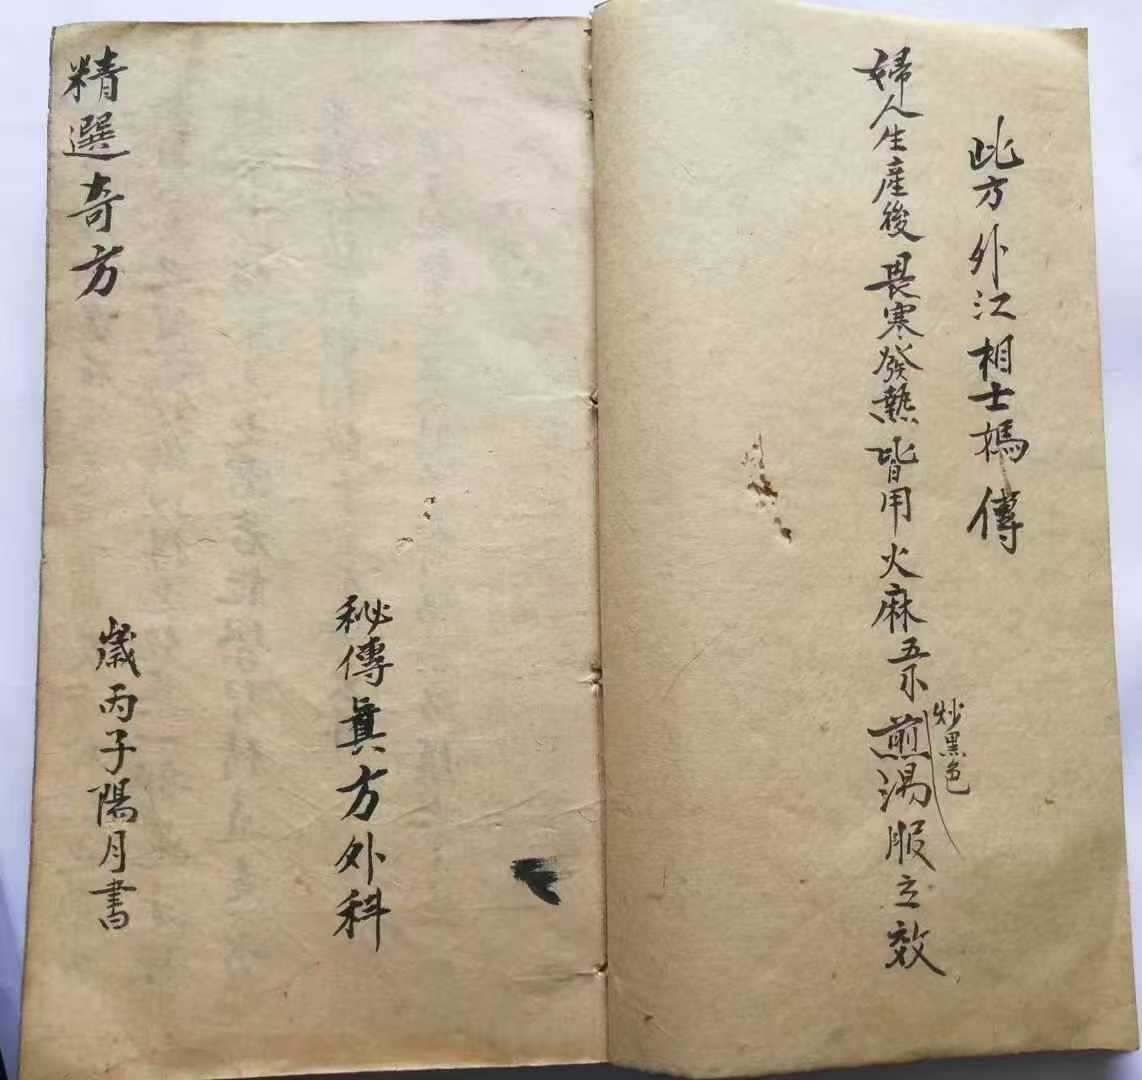 此方外江相士傳
婦人生產後畏寒發熱皆用火麻五煎湯服立效
炒黑色
秘傳眞方外科
精選奇方
歲丙子陽月書